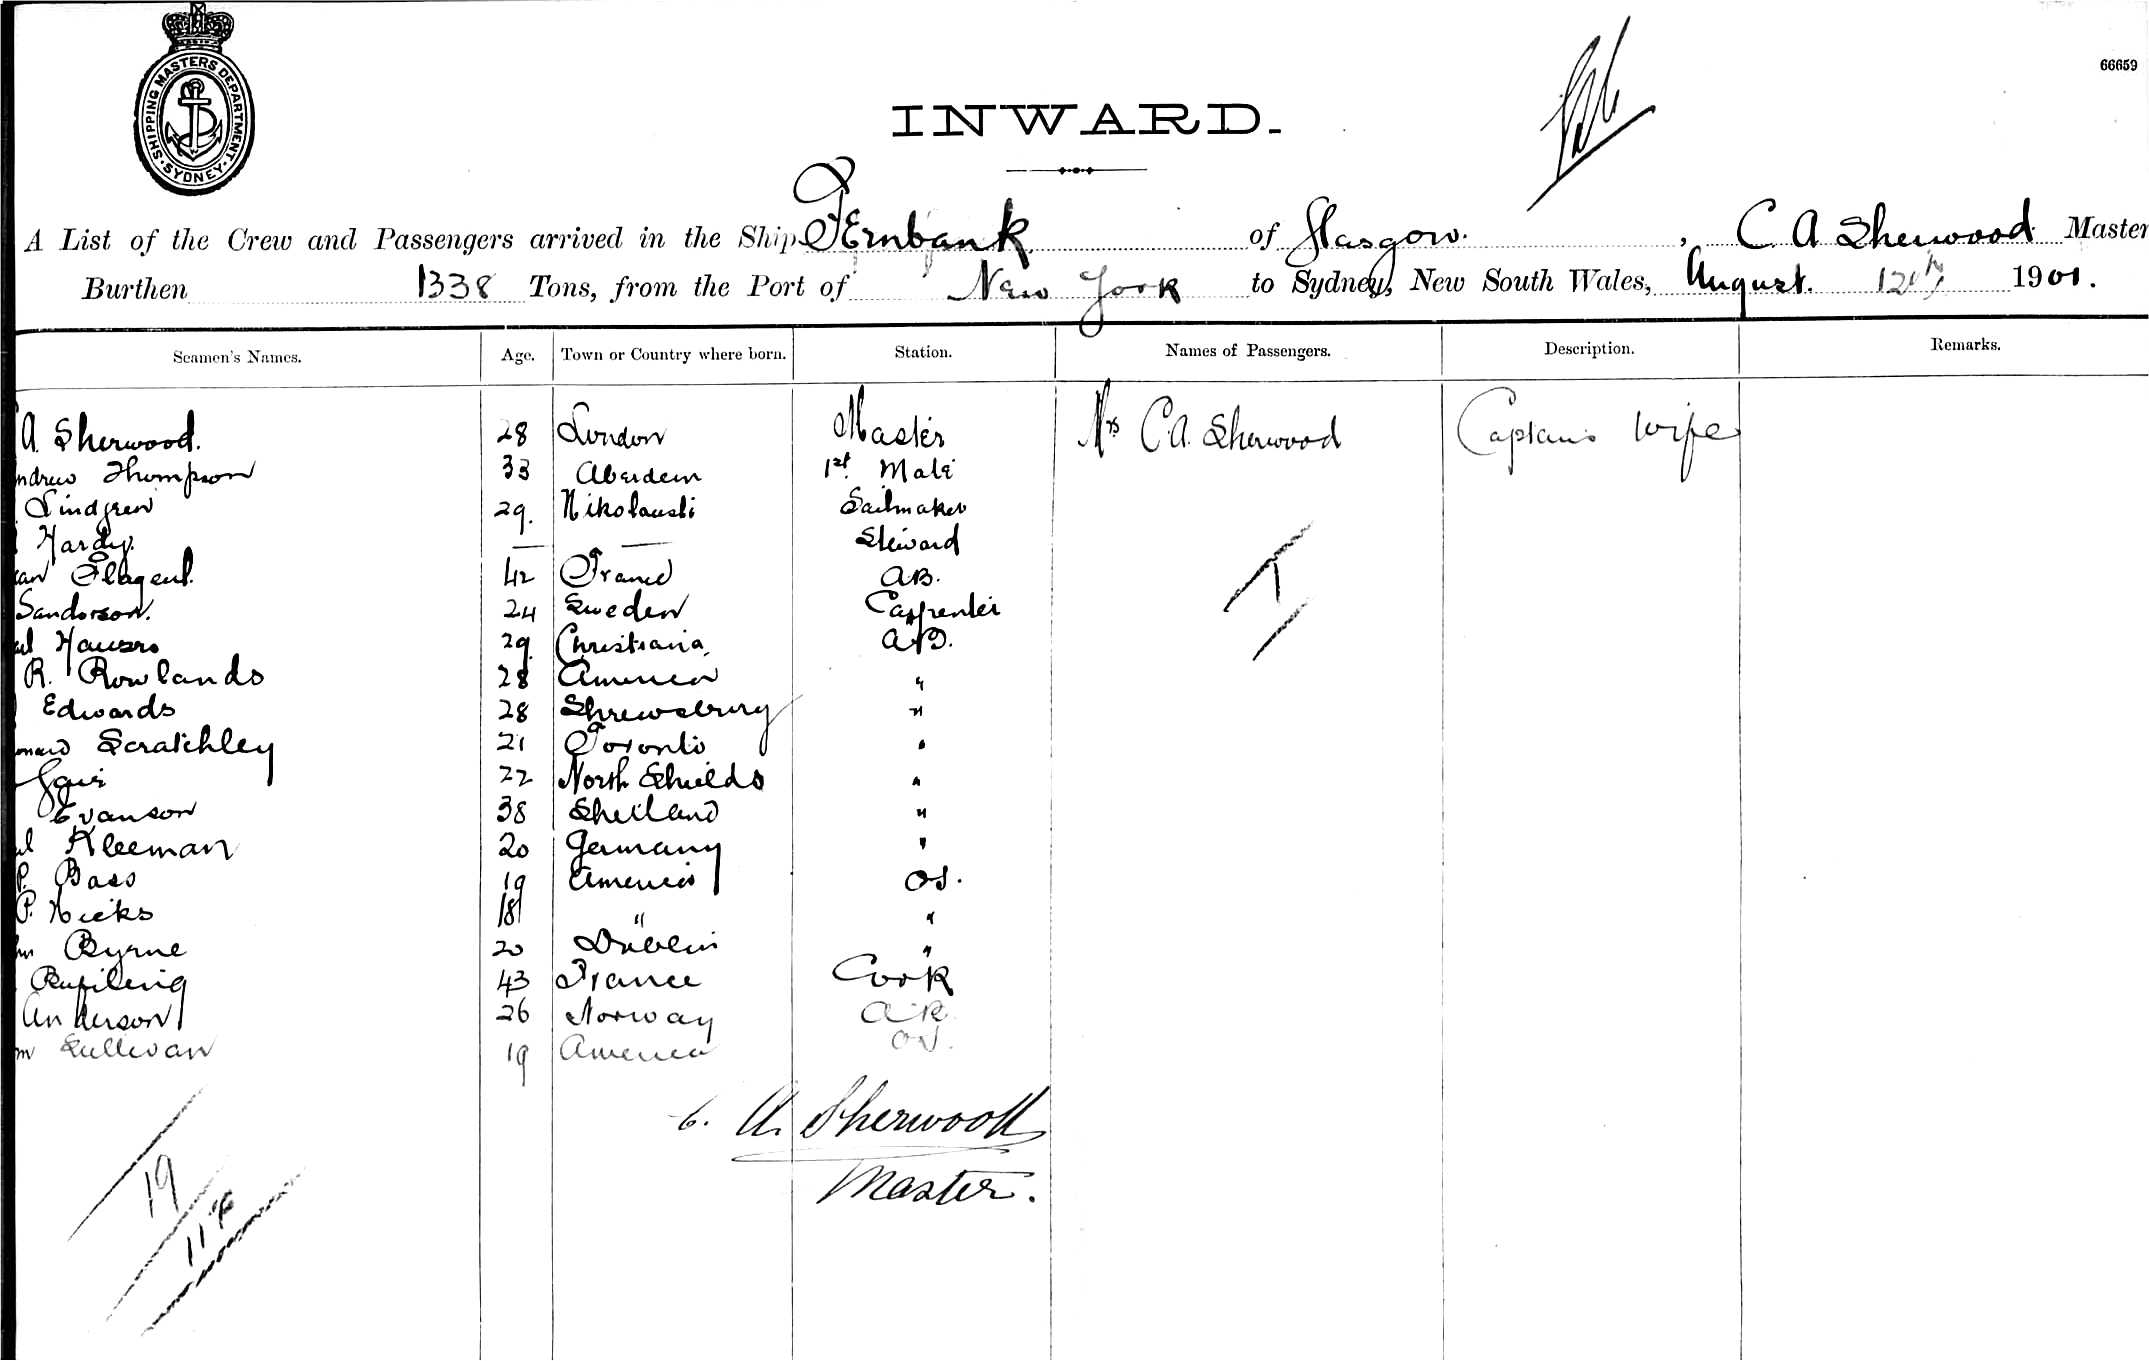 SHIPPING MASTERS DEPARTMENT. SYDNEY.
66659
INWARD.
A List of the Crew and Passengers arrived in the Ship Fernbank of Glasgow. , C A Sherwood Master
Burthen 1338 Tons, from the Port of New York to Sydney, New South Wales, August. 12th 1901.
Seamen's Names. Age. Town or Country where born. Station. Names of Passengers. Description. Remarks.
A Sherwood. 28 London Master Mrs C.A. Sherwood Captains Wife
ndrew Thompson 33 Aberdeen 1st. Mate
Lindgren 29. Sailmaker
Hardy. — — Steward
42 France AB.
Sanderson. 24 Sweden Carpenter
29. Christiania. AB.
R. Rowlands 28 America "
Edwards 28 Shrewsbury "
Scratchley 21 Toronto "
22 North Shields "
Evanson 38 Shetland "
Kleeman 20 Germany "
P. Bass 19 America OS.
P. Hicks 18 " "
Byrne 20 Dublin "
43 France Cook
Anderson 26 Norway AB
m Sullivan 19 America OS.
C. A. Sherwood
Master.
19